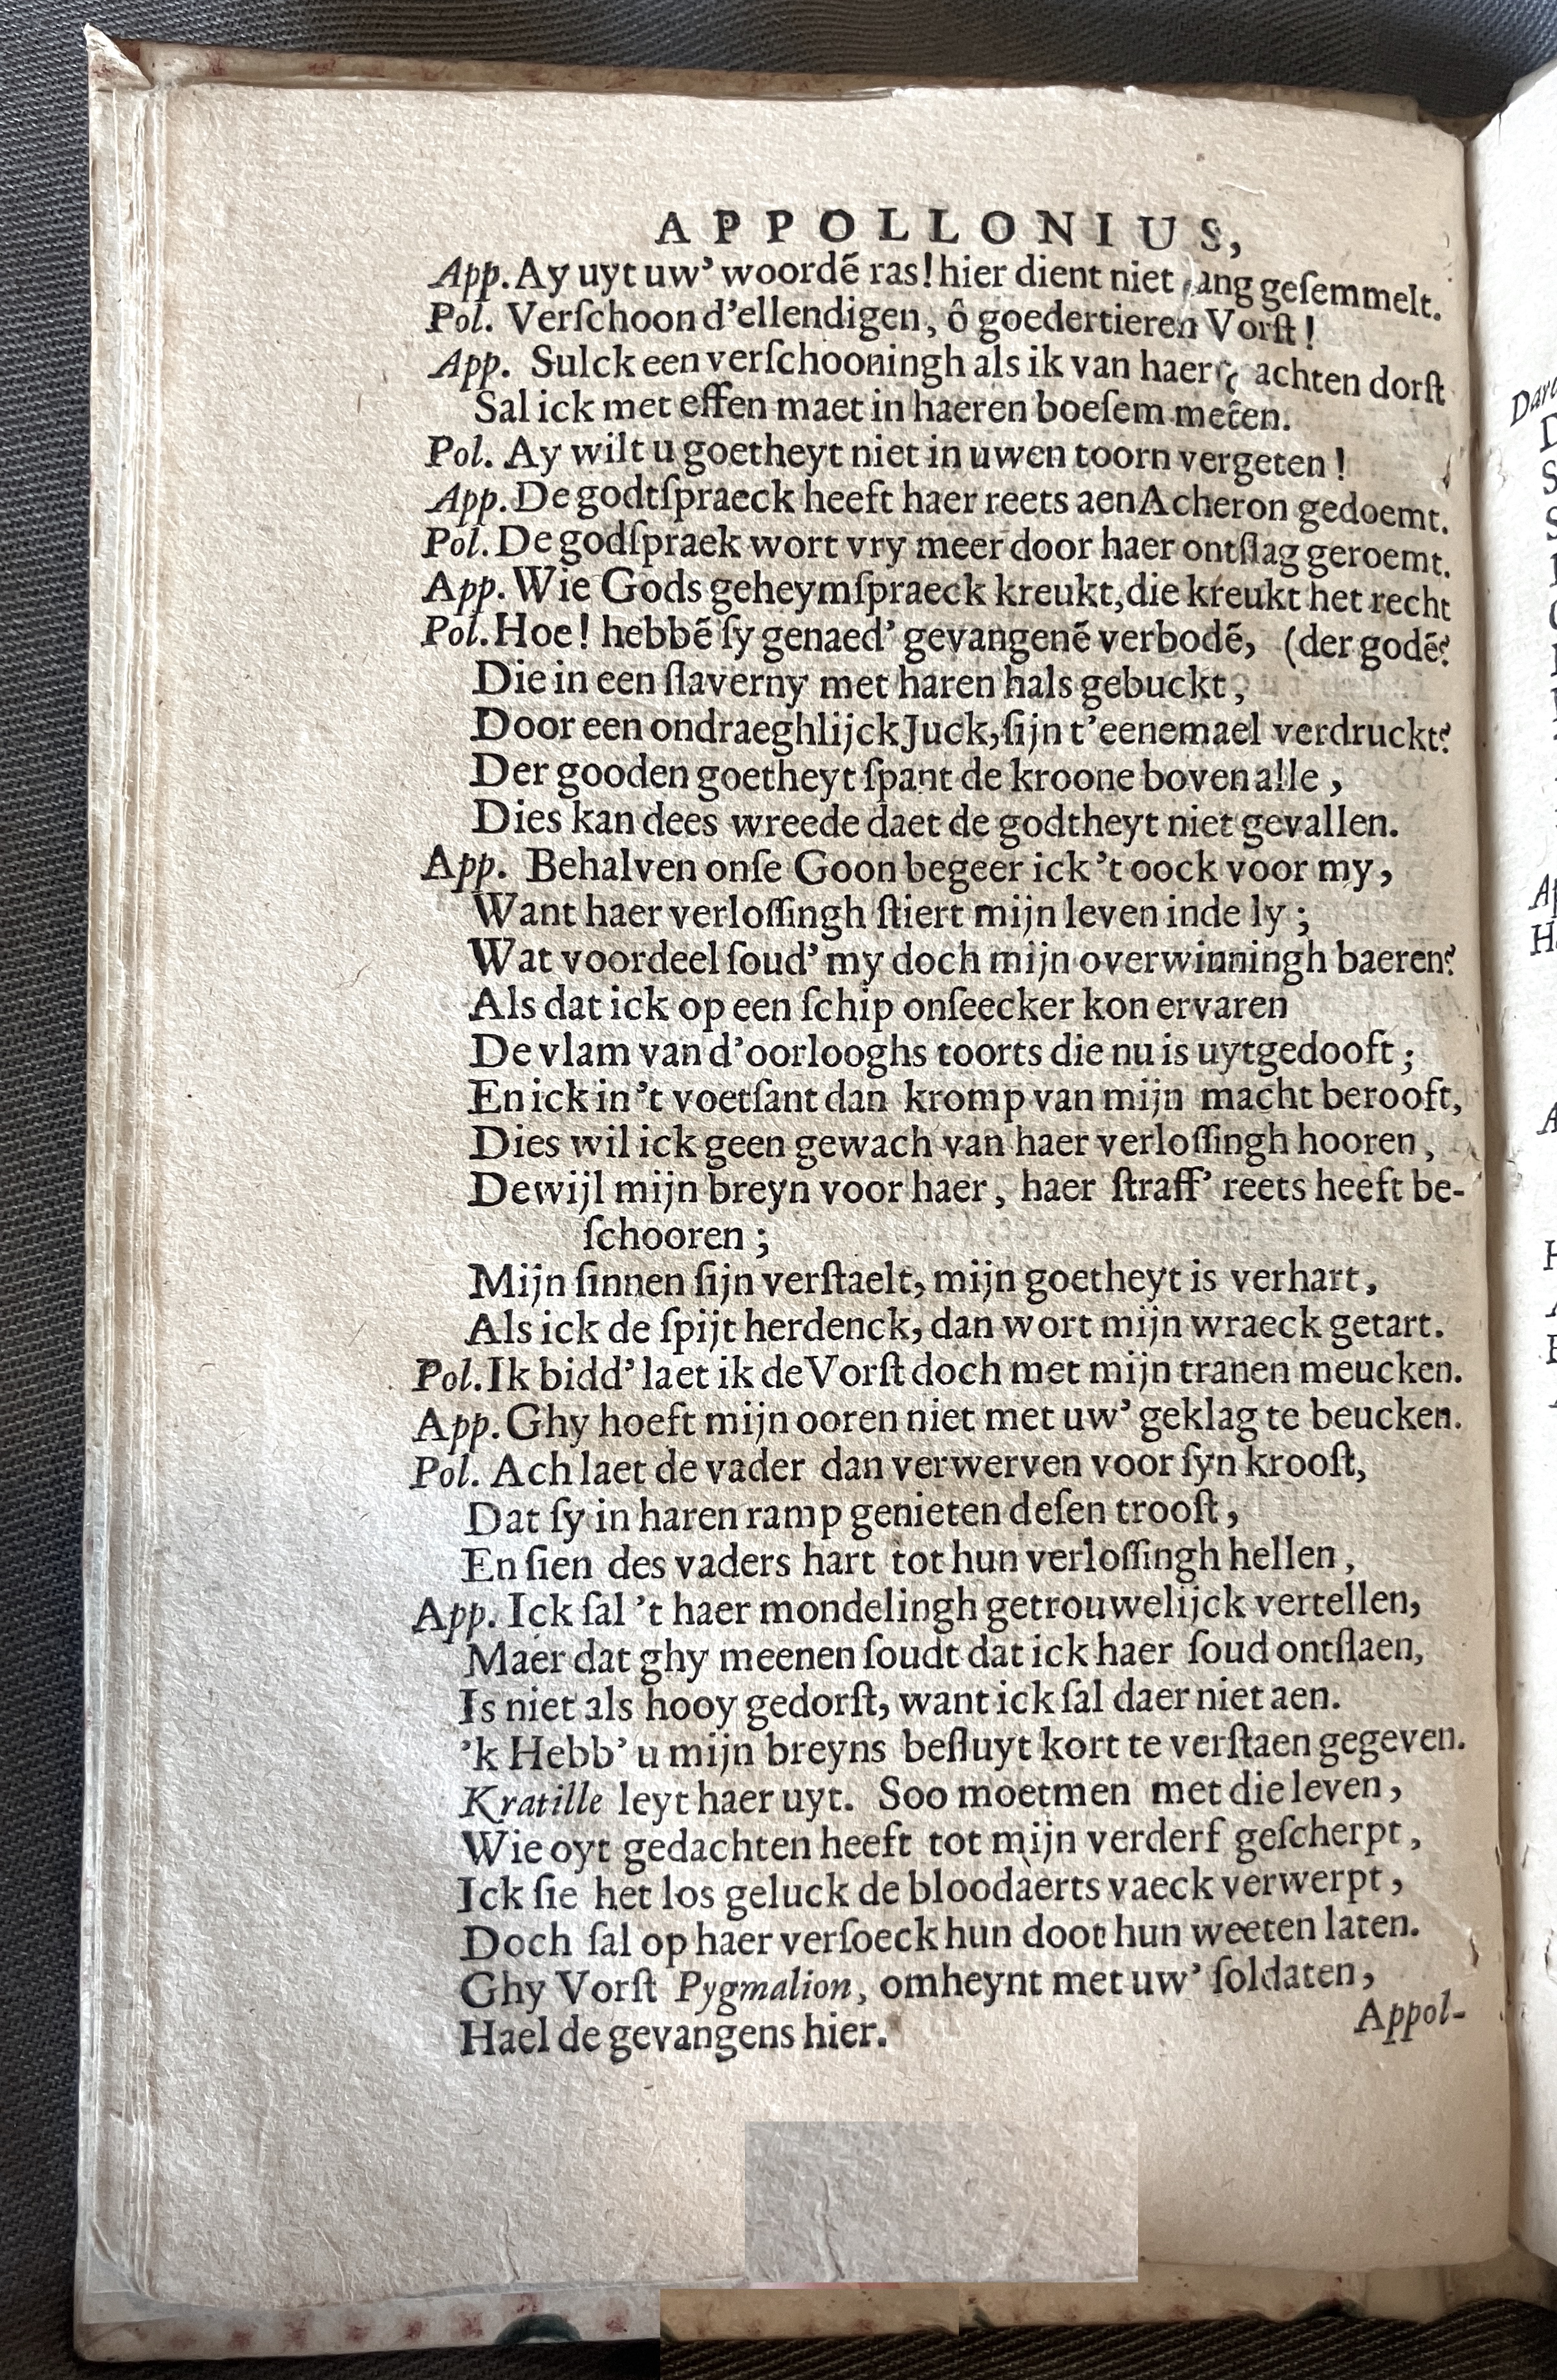 APPOLLONIUS,
App. Ay uyt uw’ woordē ras! hier dient niet lang geſemmelt.
Pol. Verſchoon d’ellendigen, ô goedertieren Vorſt!
App. Sulck een verſchooningh als ik van haer achten dorſt
Sal ick met effen maet in haeren boeſem meten.
Pol. Ay wilt u goetheyt niet in uwen toorn vergeten!
App. De godtſpraeck heeft haer reets aen Acheron gedoemt.
Pol. De godſpraek wort vry meer door haer ontſlag geroemt.
App. Wie Gods geheymſpraeck kreukt, die kreukt het recht
Pol. Hoe! hebbē ſy genaed’ gevangenē verbodē, (der godē?
Die in een ſlaverny met haren hals gebuckt,
Door een ondraeghlijck Juck, ſijn t’eenemael verdruckt?
Der gooden goetheyt ſpant de kroone boven alle,
Dies kan dees wreede daet de godtheyt niet gevallen.
App. Behalven onſe Goon begeer ick ’t oock voor my,
Want haer verloſſingh ſtiert mijn leven inde ly;
Wat voordeel ſoud’ my doch mijn overwinningh baeren?
Als dat ick op een ſchip onſeecker kon ervaren
De vlam van d’oorlooghs toorts die nu is uytgedooft;
En ick in ’t voetſant dan kromp van mijn macht berooft,
Dies wil ick geen gewach van haer verloſſingh hooren,
Dewijl mijn breyn voor haer, haer ſtraff’ reets heeft be-
ſchooren;
Mijn ſinnen ſijn verſtaelt, mijn goetheyt is verhart,
Als ick de ſpijt herdenck, dan wort mijn wraeck getart.
Pol. Ik bidd’ laet ik de Vorſt doch met mijn tranen meucken.
App. Ghy hoeft mijn ooren niet met uw’ geklag te beucken.
Pol. Ach laet de vader dan verwerven voor ſyn krooſt,
Dat ſy in haren ramp genieten deſen trooſt,
En ſien des vaders hart tot hun verloſſingh hellen,
App. Ick ſal ’t haer mondelingh getrouwelijck vertellen,
Maer dat ghy meenen ſoudt dat ick haer ſoud ontſlaen,
Is niet als hooy gedorſt, want ick ſal daer niet aen.
’k Hebb’ u mijn breyns beſluyt kort te verſtaen gegeven.
Kratille leyt haer uyt. Soo moetmen met die leven,
Wie oyt gedachten heeft tot mijn verderf geſcherpt,
Ick ſie het los geluck de bloodaerts vaeck verwerpt,
Doch ſal op haer verſoeck hun doot hun weeten laten.
Ghy Vorſt Pygmalion, omheynt met uw’ ſoldaten,
Hael de gevangens hier.
Appol-